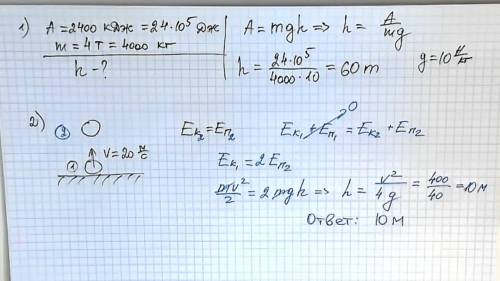 1) A = 2400 кДж = 24·10⁵ Дж
m = 4 т = 4000 кг
h - ?
A = mgh => h = A/mg
h = 24·10⁵/4000·10 = 60 m
g = 10 Н/кг
2) ②
① V = 20 м/с
Eк₂ = Eп₂
Eк₁ + Eп₁ = Eк₂ + Eп₂
0
Eк₁ = 2Eп₂
mv²/2 = 2mgh => h = v²/4g = 400/40 = 10 м
Ответ: 10 м